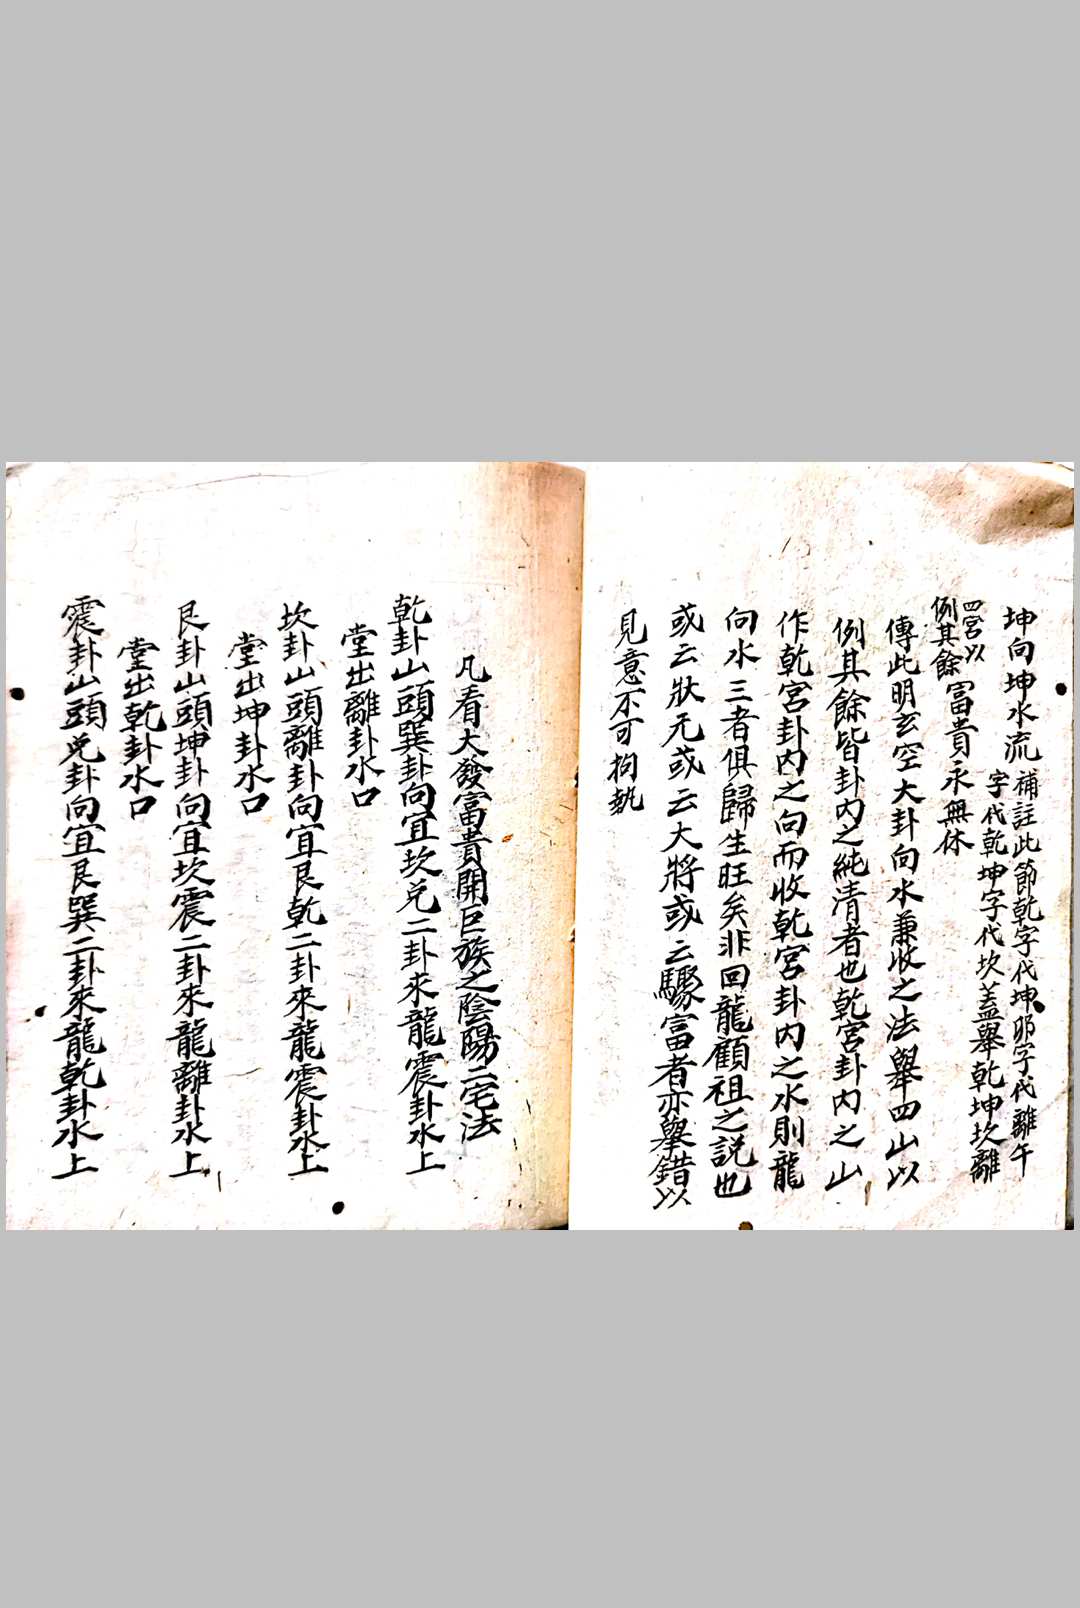 坤向坤水流
補註此節乾字代坤卯字代離午
字代乾坤字代坎盖舉乾坤坎離
四宮以
例其餘
富貴永無休
傳此明玄空大卦向水兼收之法舉四山以
例其餘皆卦內之純清者也乾宮卦內之山
作乾宮卦內之向而收乾宮卦內之水則龍
向水三者俱歸生旺矣非回龍顧祖之説也
或云狀元或云大將或云驟富者亦舉錯以
見意不可拘執
凡看大發富貴開巨族之陰陽二宅法
乾卦山頭巽卦向宜坎兌二卦來龍震卦水上
堂出離卦水口
坎卦山頭離卦向宜艮乾二卦來龍震卦水上
堂出坤卦水口
艮卦山頭坤卦向宜坎震二卦來龍離卦水上
堂出乾卦水口
震卦山頭兌卦向宜艮巽二卦來龍乾卦水上